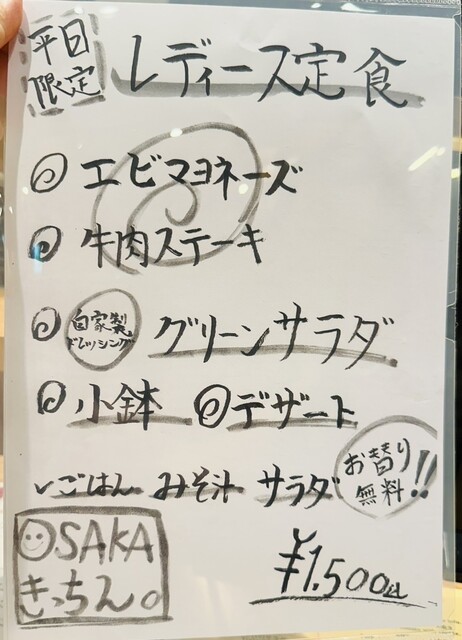 平日
限定
レディース定食
エビマヨネーズ
牛肉ステーキ
自家製
ドレッシング
グリーンサラダ
小鉢 デザート
ごはん みそ汁 サラダ
お替り
無料!!
OSAKA
きっちん。
¥1,500